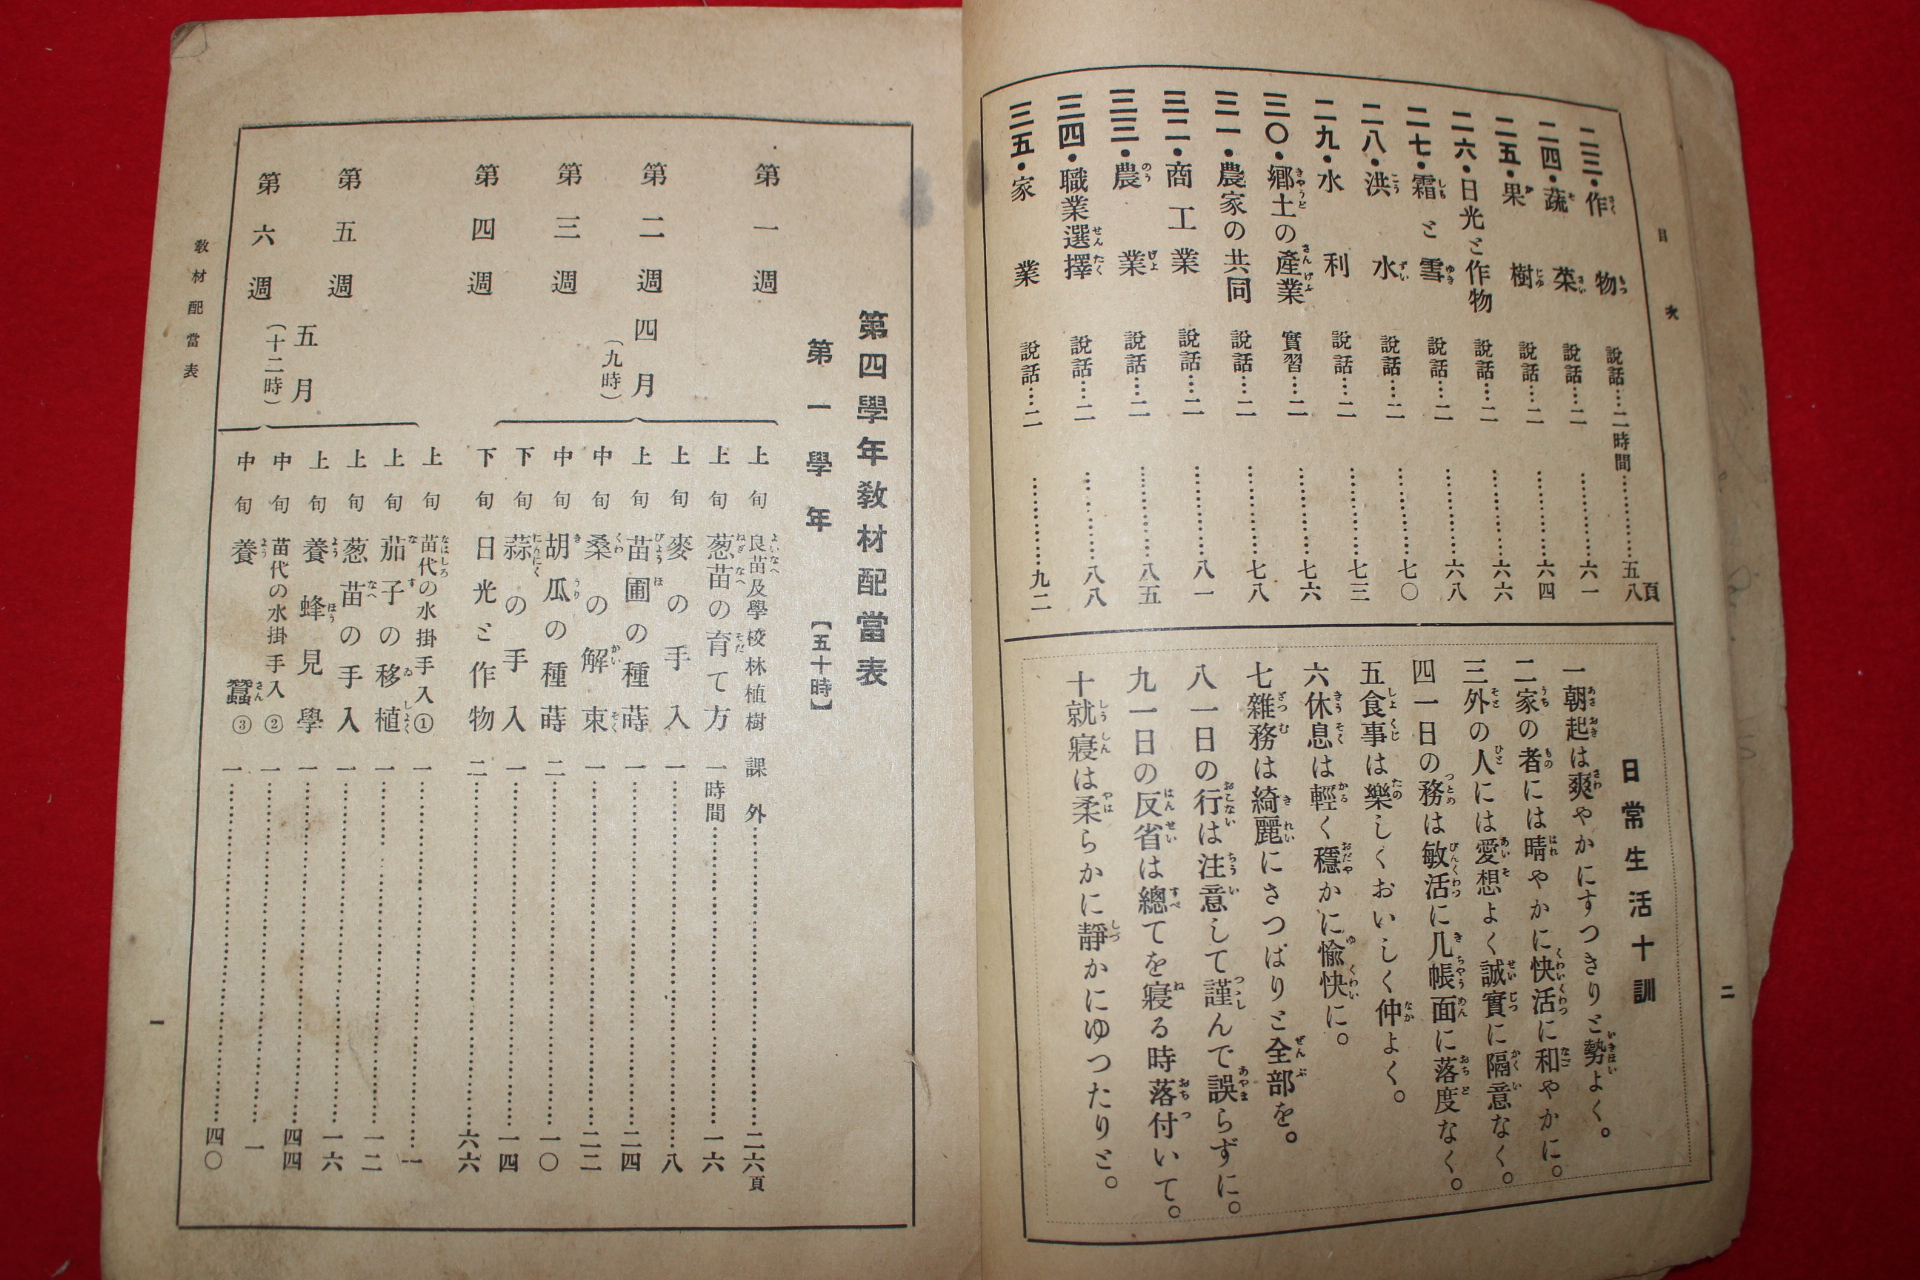 目次
二
二三・作物 說話…二時間…………五八頁
二四・蔬菜 說話…二…………六一
二五・果樹 說話…二…………六四
二六・日光と作物 說話…二…………六六
二七・霜と雪 說話…二…………六八
二八・洪水 說話…二…………七〇
二九・水利 說話…二…………七三
三〇・鄕土の產業 實習…二…………七六
三一・農家の共同 說話…二…………七八
三二・商工業 說話…二…………八一
三三・農業 說話…二…………八五
三四・職業選擇 說話…二…………八八
三五・家業 說話…二…………九二
日常生活十訓
一朝起は爽やかにすつきりと勢よく。
二家の者には晴やかに快活に和やかに。
三外の人には愛想よく誠實に隔意なく。
四一日の務は敏活に几帳面に落度なく。
五食事は樂しくおいしく仲よく。
六休息は輕く穩かに愉快に。
七雜務は綺麗にさつぱりと全部を。
八一日の行は注意して謹んで誤らずに。
九一日の反省は總てを寢る時落付いて。
十就寢は柔らかに靜かにゆつたりと。
第四學年敎材配當表
第一學年 【五十時】
第一週
第二週
第三週
第四週
四月
(九時)
上旬 良苗及學校林植樹 課外…………二六頁
上旬 葱苗の育て方 一時間…………一六
上旬 麥の手入 一…………八
上旬 苗圃の種蒔 一…………二四
中旬 桑の解束 一…………二二
中旬 胡瓜の種蒔 二…………一〇
下旬 蒜の手入 一…………一四
下旬 日光と作物 二…………六六
第五週
第六週
五月
(十二時)
上旬 苗代の水掛手入① 一…………一
上旬 茄子の移植 一…………一二
上旬 葱苗の手入 一…………一六
上旬 養蜂見學 一…………四四
中旬 苗代の水掛手入② 一…………一
中旬 養蠶③ 一…………四〇
敎材配當表
一